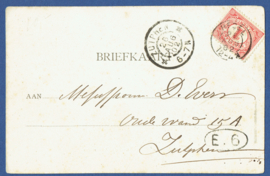 BRIEFKA
AAN Mejuffrouw D. Evers
Oude wand 151
Zutphen
E. 6
6-7N